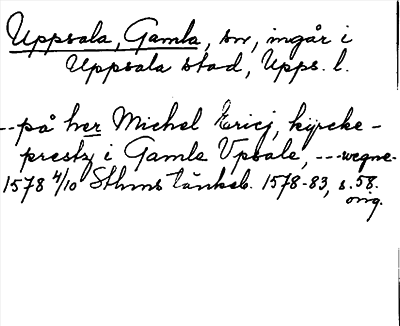 Uppsala, Gamla, sn, ingår i
Uppsala stad, Upps. l.
--på her Michel Ericj, kyrcke-
prestz i Gamle Vpsale, ---wegne-
1578 4/10 Sthms tänkeb. 1578-83, s. 58.
orig.